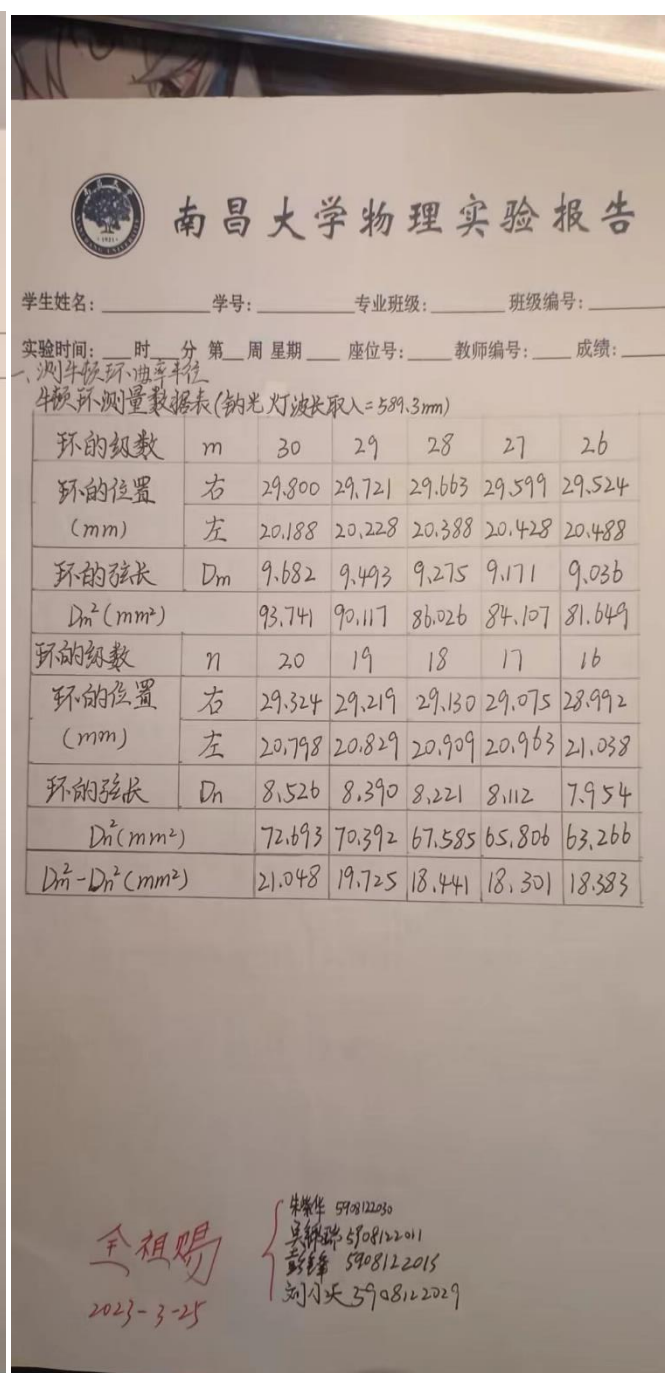 南昌大学物理实验报告
学生姓名: 学号: 专业班级: 班级编号:
实验时间: 时 分 第 周 星期 座位号: 教师编号: 成绩:
一、测牛顿环曲率半径
牛顿环测量数据表(钠光灯波长取λ=589.3nm)
环的级数 m 30 29 28 27 26
环的位置 右 29.800 29.721 29.663 29.599 29.524
(mm) 左 20.188 20.228 20.388 20.428 20.488
环的弦长 Dm 9.682 9.493 9.275 9.171 9.036
Dm²(mm²) 93.741 90.117 86.026 84.107 81.649
环的级数 n 20 19 18 17 16
环的位置 右 29.324 29.219 29.130 29.075 28.992
(mm) 左 20.798 20.829 20.909 20.963 21.038
环的弦长 Dn 8.526 8.390 8.221 8.112 7.954
Dn²(mm²) 72.693 70.392 67.585 65.806 63.266
Dm²-Dn²(mm²) 21.048 19.725 18.441 18.301 18.383
5908122030
5908122011
祖赐 5908122015
2023-3-25 5908122029